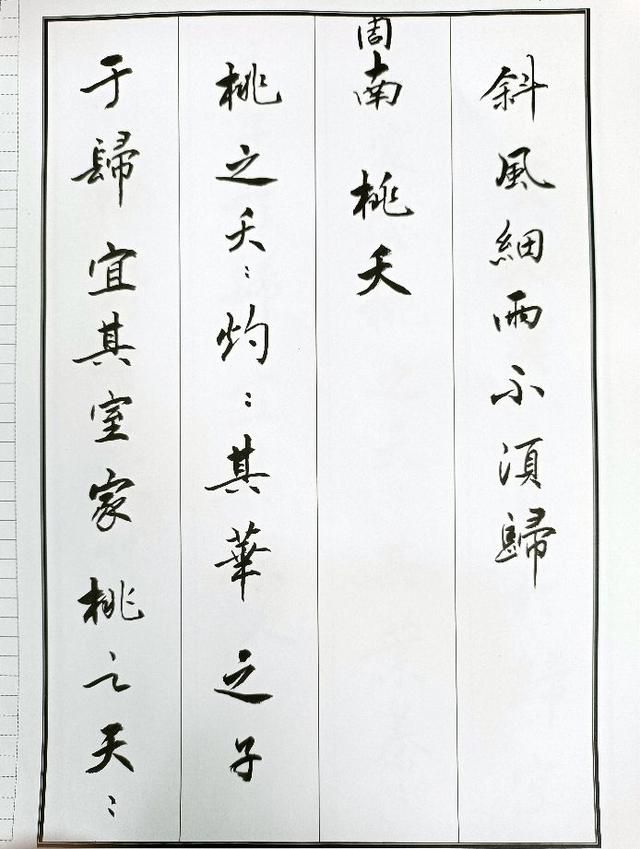 斜風細雨不須歸
周南 桃夭
桃之夭：灼：其華之子
于歸宜其室家桃之夭：